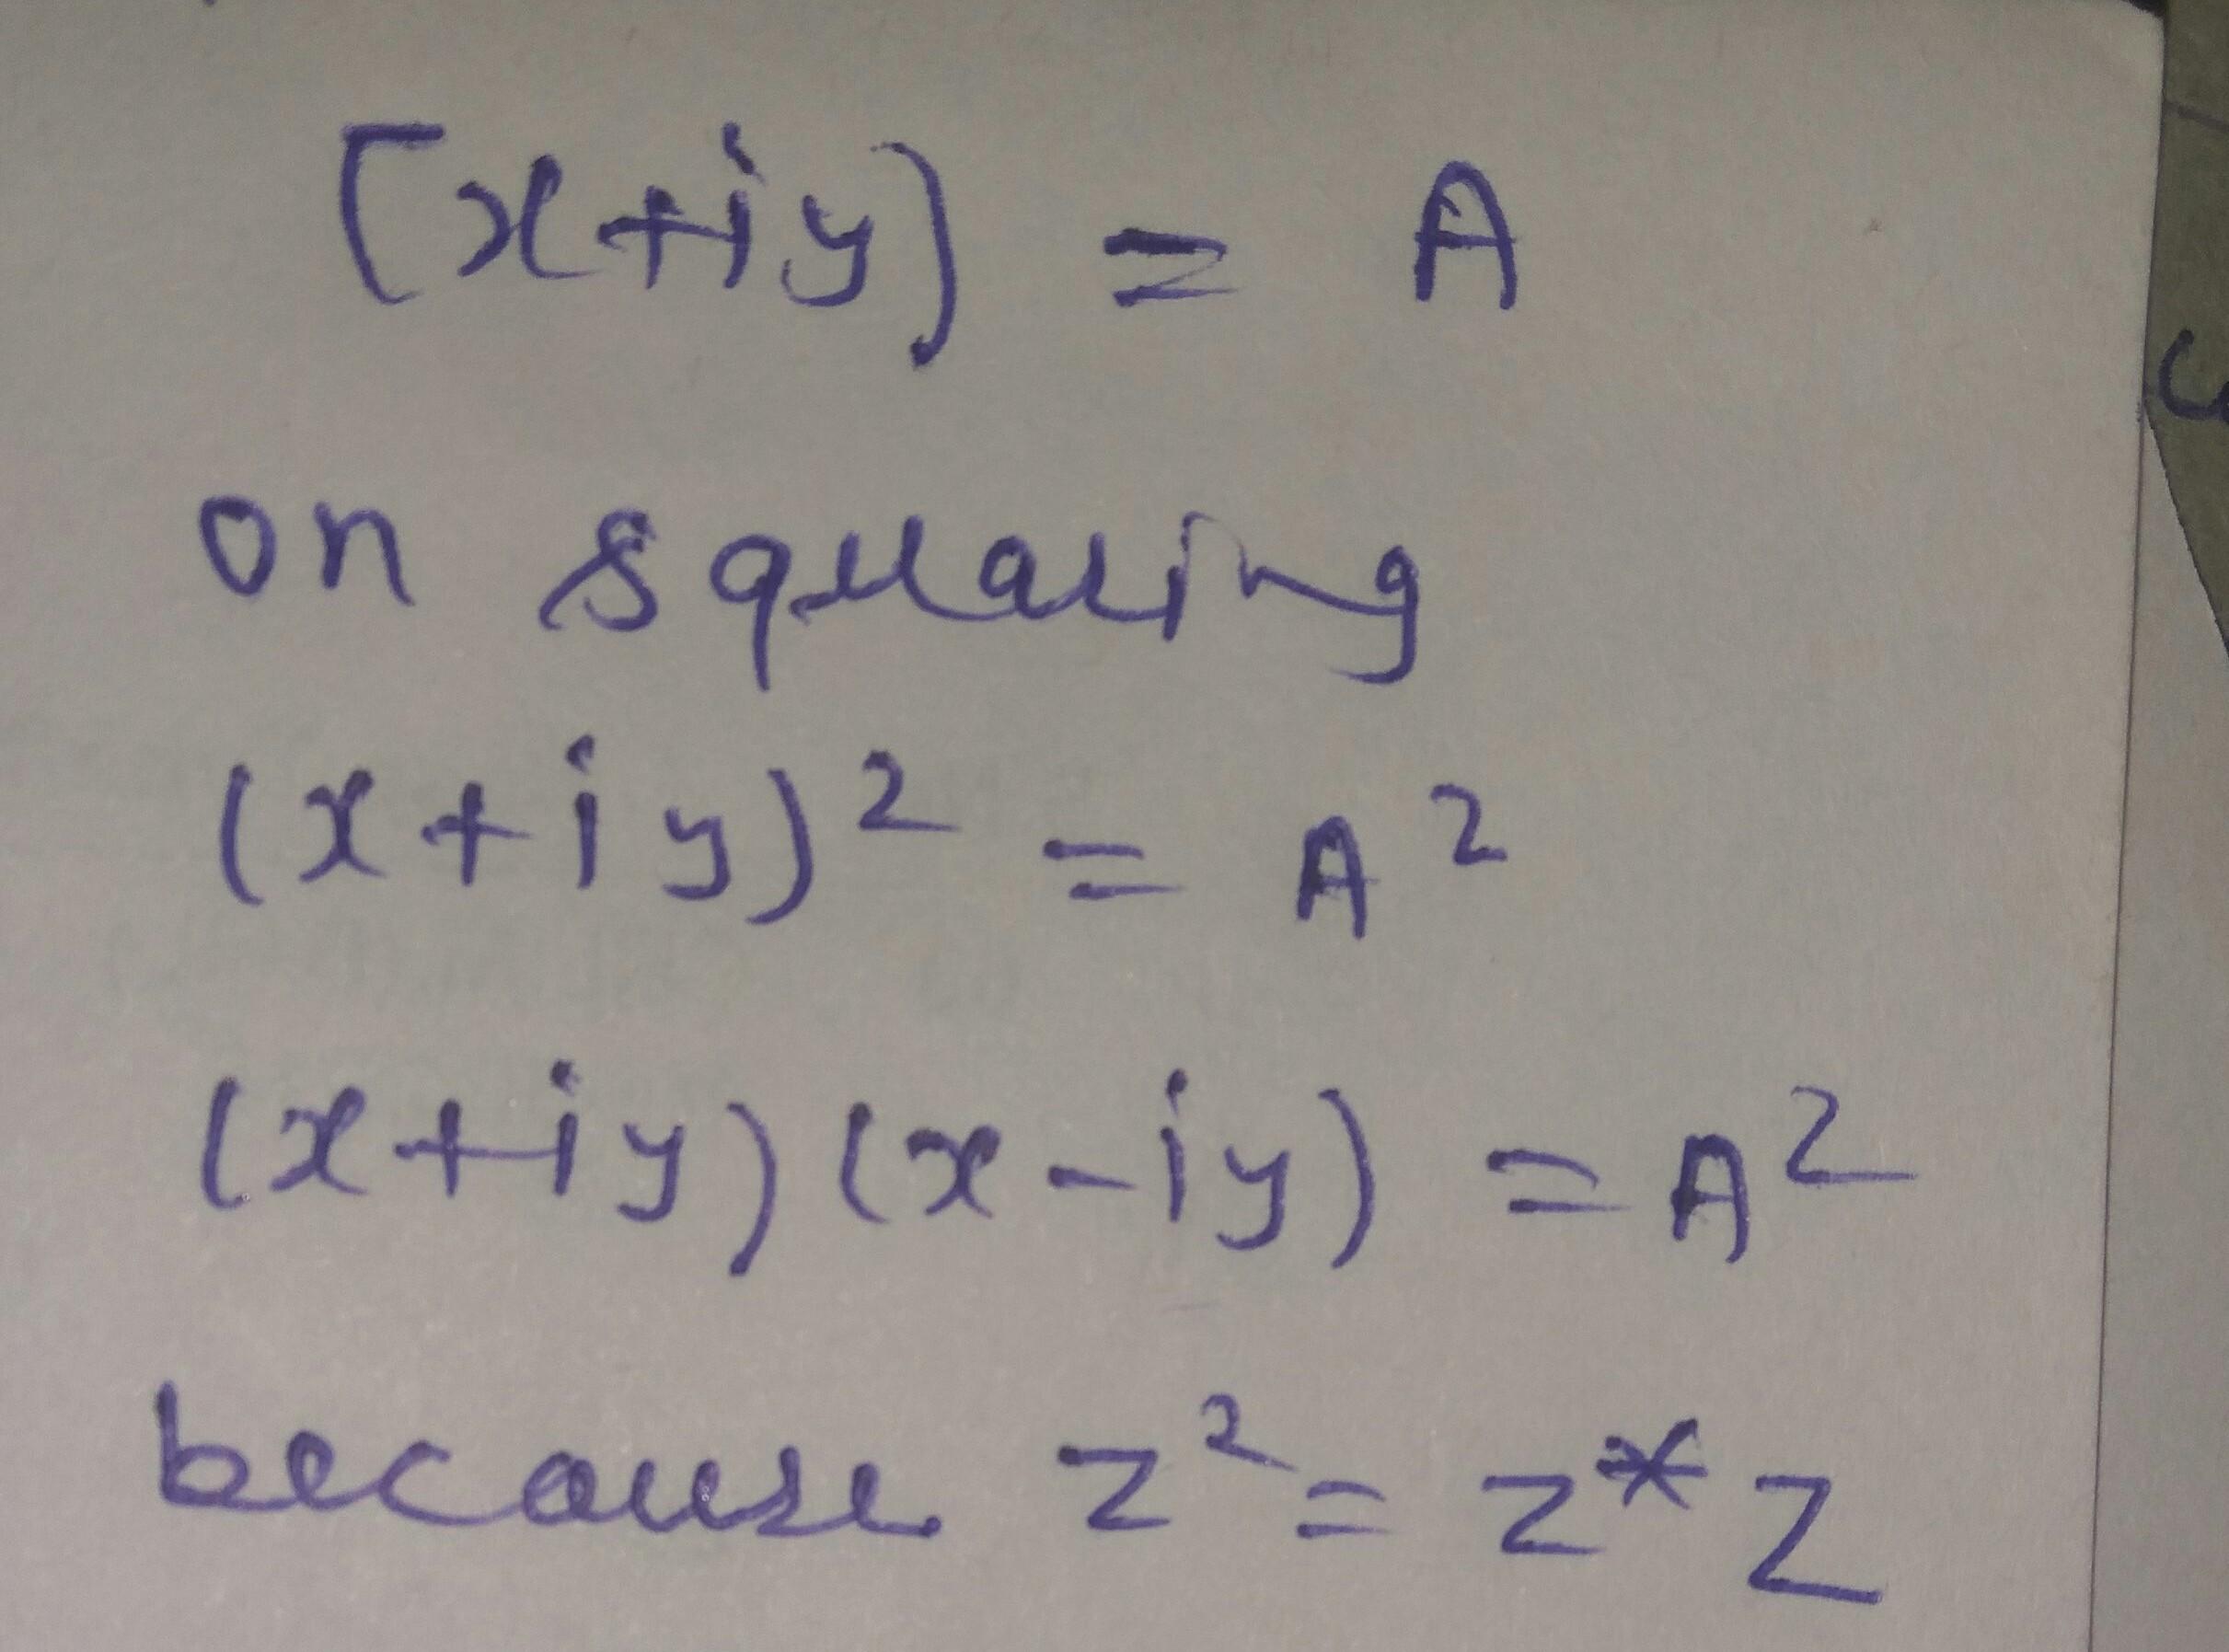 [x+iy) = A
on squaring
(x+iy)² = A²
(x+iy)(x-iy) = A²
because z² = z* z